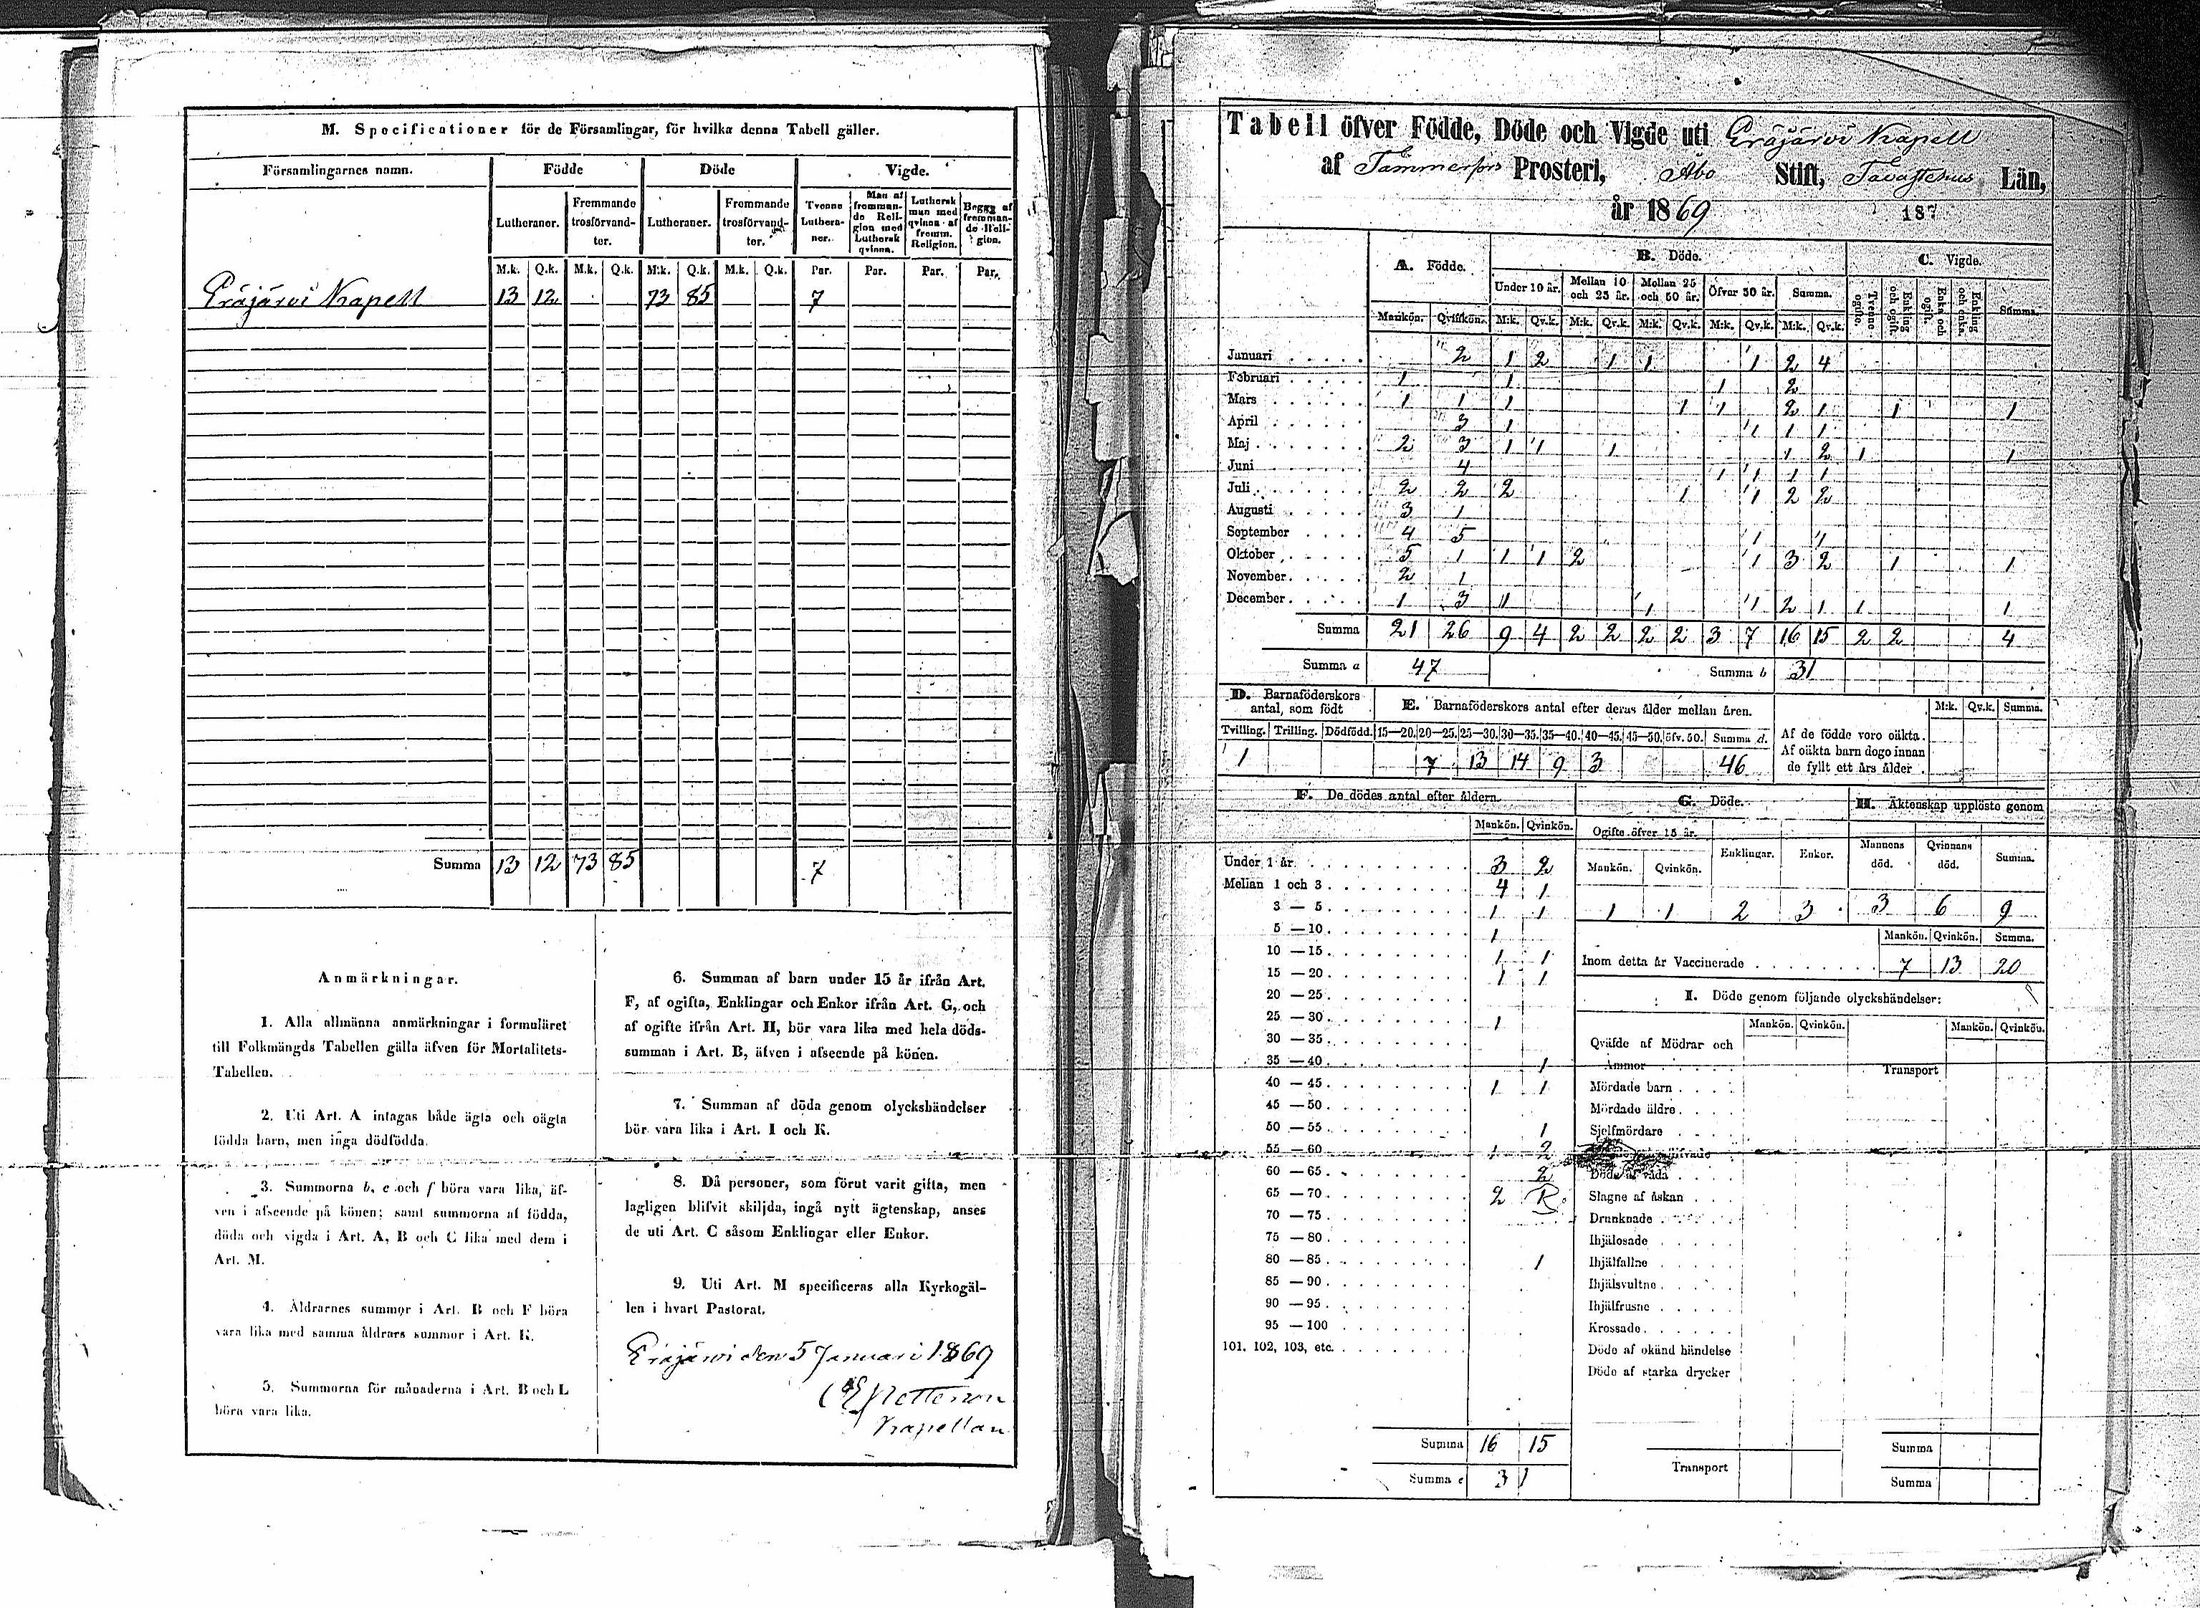 M. Specificationer för de Församlingar, för hvilka denna Tabell gäller.
Församlingarnes namn. Födde Döde Vigde.
Lutheraner. Fremmande trosförvandter. Lutheraner. Fremmande trosförvandter. Tvenne Lutheraner. Man af fremmande Religion med Luthersk qvinna. Luthersk man med qvinna af fremm. Religion. Begge af fremmande Religion.
M.k. Q.k. M.k. Q.k. M.k. Q.k. M.k. Q.k. Par. Par. Par. Par.
Eräjärvi Kapell 13 12 73 85 7
Summa 13 12 73 85 7
Anmärkningar.
1. Alla allmänna anmärkningar i formuläret
till Folkmängds Tabellen gälla äfven för Mortalitets-
Tabellen.
2. Uti Art. A intagas både ägta och oägta
födda barn, men inga dödfödda.
3. Summorna b, c och f böra vara lika, äf-
ven i afseende på könen; samt summorna af födda,
döda och vigda i Art. A, B och C lika med dem i
Art. M.
4. Åldrarnes summor i Art. B och F böra
vara lika med samma åldrars summor i Art. K.
5. Summorna för månaderna i Art. B och L
böra vara lika.
6. Summan af barn under 15 år ifrån Art.
F, af ogifta, Enklingar och Enkor ifrån Art. G, och
af ogifte ifrån Art. H, bör vara lika med hela döds-
summan i Art. B, äfven i afseende på könen.
7. Summan af döda genom olyckshändelser
bör vara lika i Art. I och K.
8. Då personer, som förut varit gifta, men
lagligen blifvit skiljda, ingå nytt ägtenskap, anses
de uti Art. C såsom Enklingar eller Enkor.
9. Uti Art. M specificeras alla Kyrkogäl-
len i hvart Pastorat.
Eräjärvi den 5 Januari 1869
Kapellan
Tabell öfver Födde, Döde och Vigde uti Eräjärvi Kapell
af Tammerfors Prosteri, Åbo Stift, Tavastehus Län,
år 1869 187
A. Födde. B. Döde. C. Vigde.
Under 10 år. Mellan 10 och 25 år. Mellan 25 och 50 år. Öfver 50 år. Summa. Tvenne ogifte. Enkling och ogift. Enka och ogift. Enkling och enka. Summa.
Mankön. Qvinkön. M:k. Qv.k. M:k. Qv.k. M:k. Qv.k. M:k. Qv.k. M:k. Qv.k.
Januari 2 1 2 1 1 1 2 4
Februari 1 1 1 2
Mars 1 1 1 1 1 2 1 1 1
April 3 1 1 1 1
Maj 2 3 1 1 1 1 2 1 1
Juni 4 1 1 1 1
Juli 2 2 2 1 1 2 2
Augusti 3 1
September 4 5 1 1
Oktober 5 1 1 1 2 1 3 2 1 1
November 2 1
December 1 3 1 1 1 2 1 1 1
Summa 21 26 9 4 2 2 2 2 3 7 16 15 2 2 4
Summa a 47 Summa b 31
D. Barnaföderskors antal, som födt
Tvilling. Trilling. Dödfödd.
1
E. Barnaföderskors antal efter deras ålder mellan åren.
15—20. 20—25. 25—30. 30—35. 35—40. 40—45. 45—50. öfv. 50. Summa d.
7 13 14 9 3 46
M:k. Qv.k. Summa.
Af de födde voro oäkta.
Af oäkta barn dogo innan
de fyllt ett års ålder
F. De dödes antal efter åldern.
Mankön. Qvinkön.
Under 1 år 3 2
Mellan 1 och 3 4 1
3 — 5 1 1
5 — 10 1
10 — 15 1 1
15 — 20 1 1
20 — 25
25 — 30 1
30 — 35
35 — 40 1
40 — 45 1 1
45 — 50
50 — 55 1
55 — 60 1 2
60 — 65 2
65 — 70 2
70 — 75
75 — 80
80 — 85 1
85 — 90
90 — 95
95 — 100
101, 102, 103, etc.
Summa 16 15
Summa c 31
G. Döde.
Ogifte öfver 15 år. Enklingar. Enkor.
Mankön. Qvinkön.
1 1 2 3
H. Äktenskap upplöste genom
Mannens död. Qvinnans död. Summa.
3 6 9
Mankön. Qvinkön. Summa.
Inom detta år Vaccinerade 7 13 20
I. Döde genom följande olyckshändelser:
Mankön. Qvinkön. Mankön. Qvinkön.
Qväfde af Mödrar och
Ammor Transport
Mördade barn
Mördade äldre
Sjelfmördare
Döde af våda
Slagne af åskan
Drunknade
Ihjälosade
Ihjälfallne
Ihjälsvultne
Ihjälfrusne
Krossade
Döde af okänd händelse
Döde af starka drycker
Summa
Transport
Summa